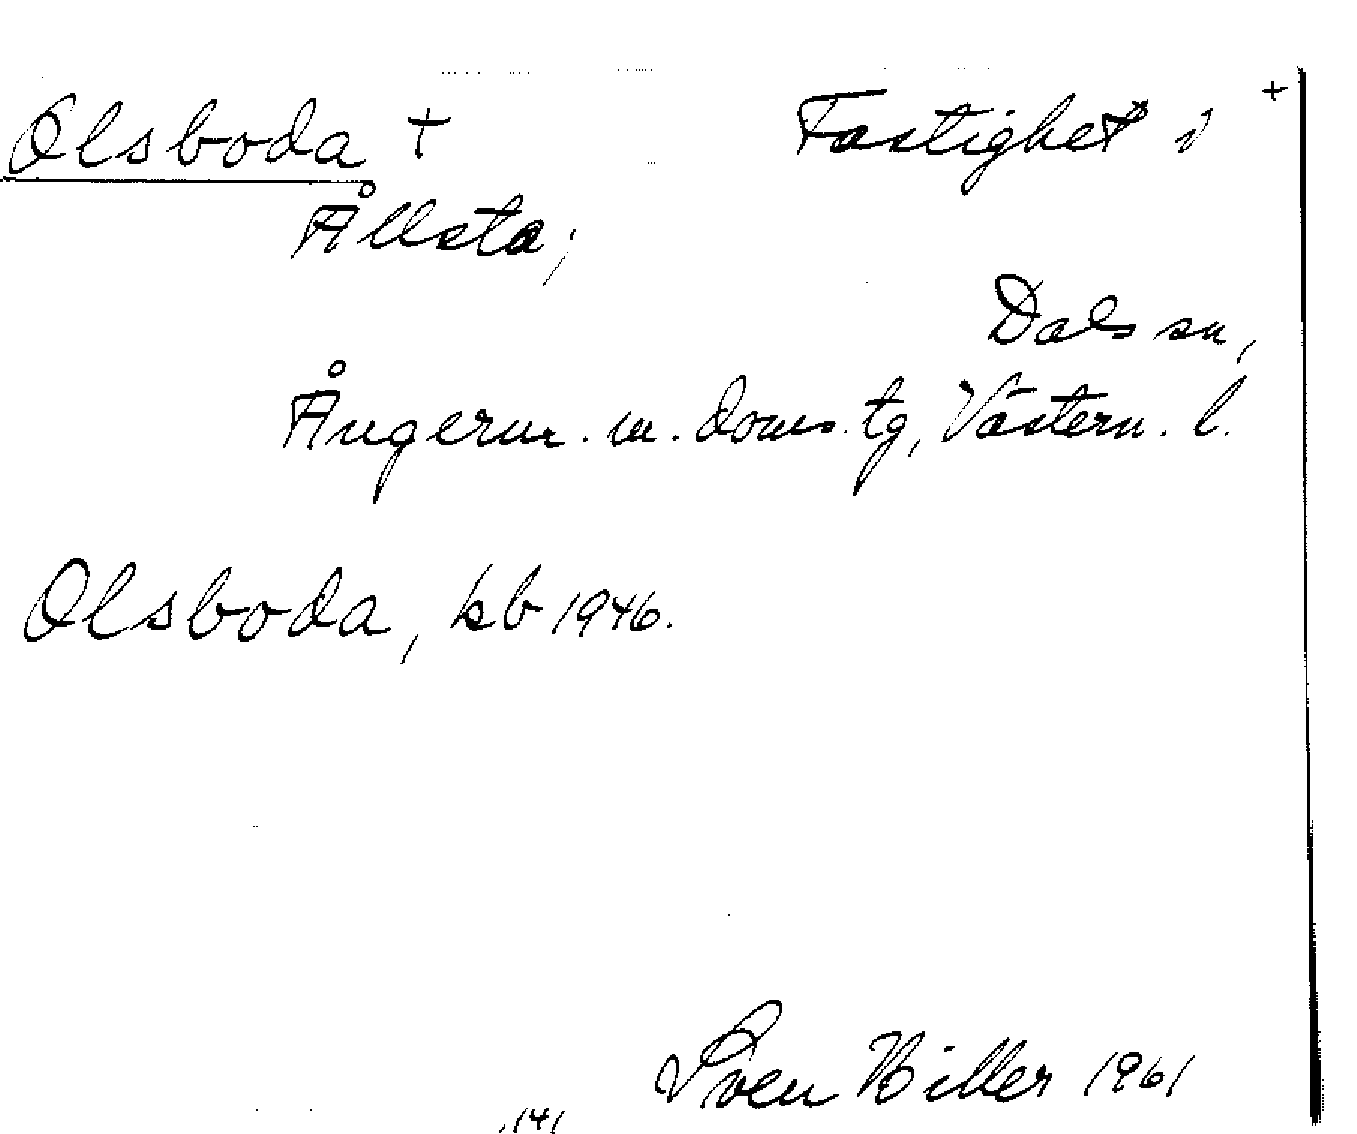 Olsboda + Fastighet i +
Ållsta;
Dals sn,
Ångerm. m. doms. tg, Västern. l.
Olsboda, kb 1946.
Sven Hiller 1961
141